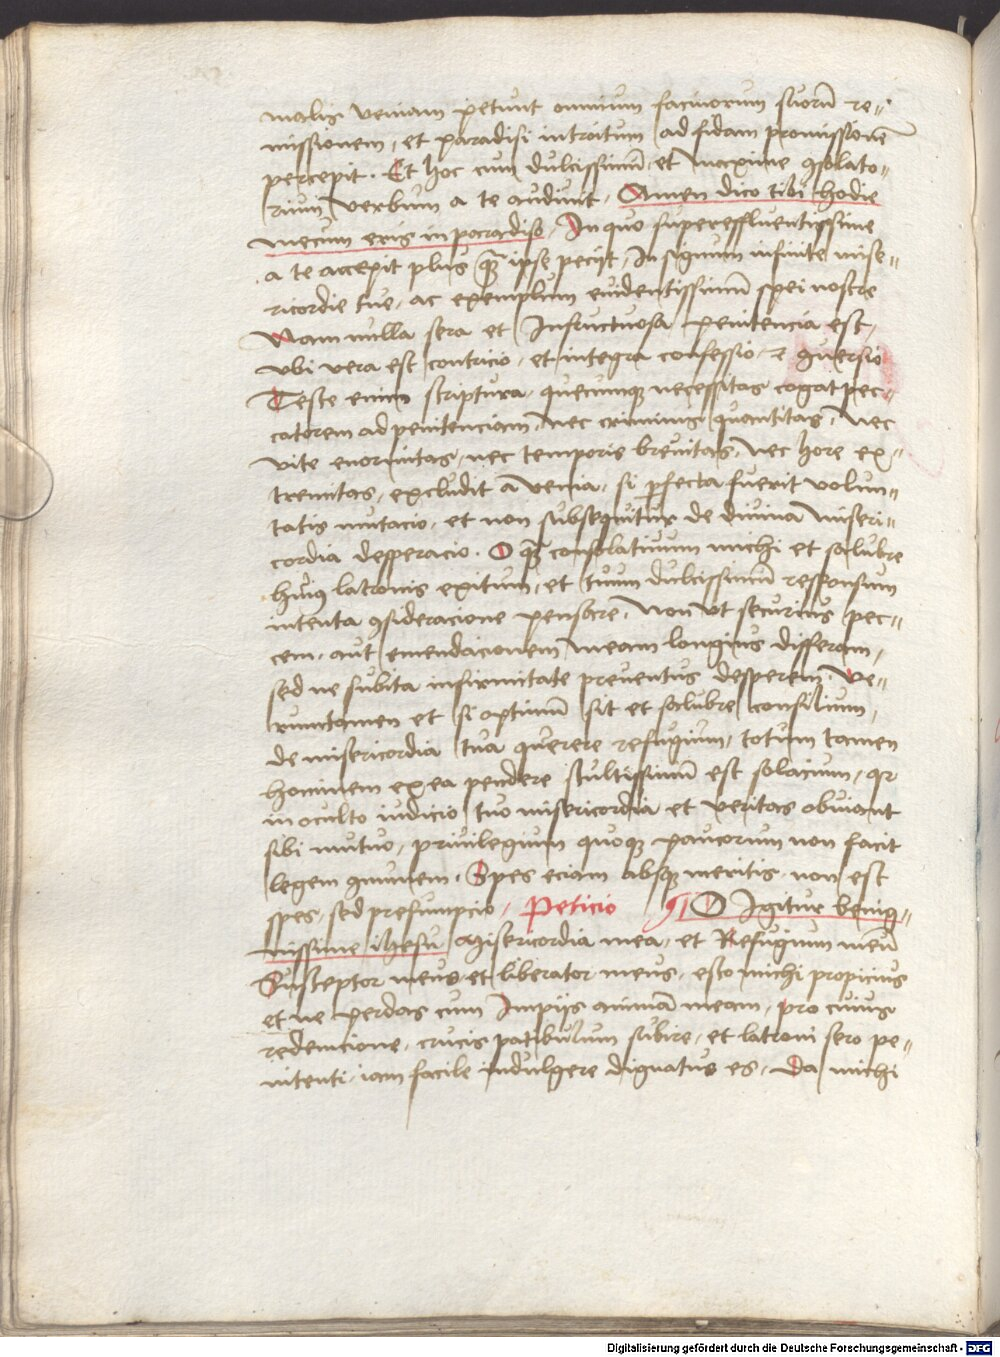 malis veniam petunt omnium facinorum suorū re-
missionem, et paradisi introitum ad fidam promissionē
percepit. Et hoc cum dulcissimū et maxime ꝯsolato-
rium verbum a te audiuit. Amen dico tibi hodie
mecum eris in paradiso. In quo supereffluentissime
a te accepit plus qȝ ipse peciit, In signum infinite mise-
ricordie tue, ac exemplum euidentissimū spei nostre
Nam nulla sera et Infructuosa penitencia est,
vbi vera est contricio, et integra confessio, ⁊ ꝯuersio
Teste enim scriptura, quecumqȝ necessitas cogat pec-
catorem ad penitenciam, nec criminis quantitas, nec
vite enormitas, nec temporis breuitas, nec hore ex-
tremitas, excludit a venia, si ꝑfecta fuerit volun-
tatis mutacio, et non subsequitur de diuina miseri-
cordia desperacio. O qȝ consolatiuum michi et salubre
huiꝰ latronis exitum, et tuum dulcissimū responsum
intenta ꝯsideracione pensare, Non vt securius pec-
cem, aut emendacionem meam longius differam,
sed ne subita infirmitate preuentus desperem. Ve-
rumtamen et si optimū sit et salubre consilium,
de misericordia tua querere refugium, totum tamen
hominem ex ea pendere stultissimū est solacium, qr
in oculto iudicio tuo misericordia et veritas obuiant
sibi mutuo, priuilegium quoqȝ paucorum non facit
legem ꝯmunem. Spes eciam absqȝ meritis non est
spes, sed presumpcio, Peticio ¶ O Igitur benig-
nissime ihesu Misericordia mea, et Refugium meū
Susceptor meus et liberator meus, esto michi propicius
et ne perdas cum Impijs animā meam, pro cuius
redemcione, crucis patibulum subire, et latroni sero pe-
nitenti, iam facile indulgere dignatus es, Da michi
Digitalisierung gefördert durch die Deutsche Forschungsgemeinschaft - DFG